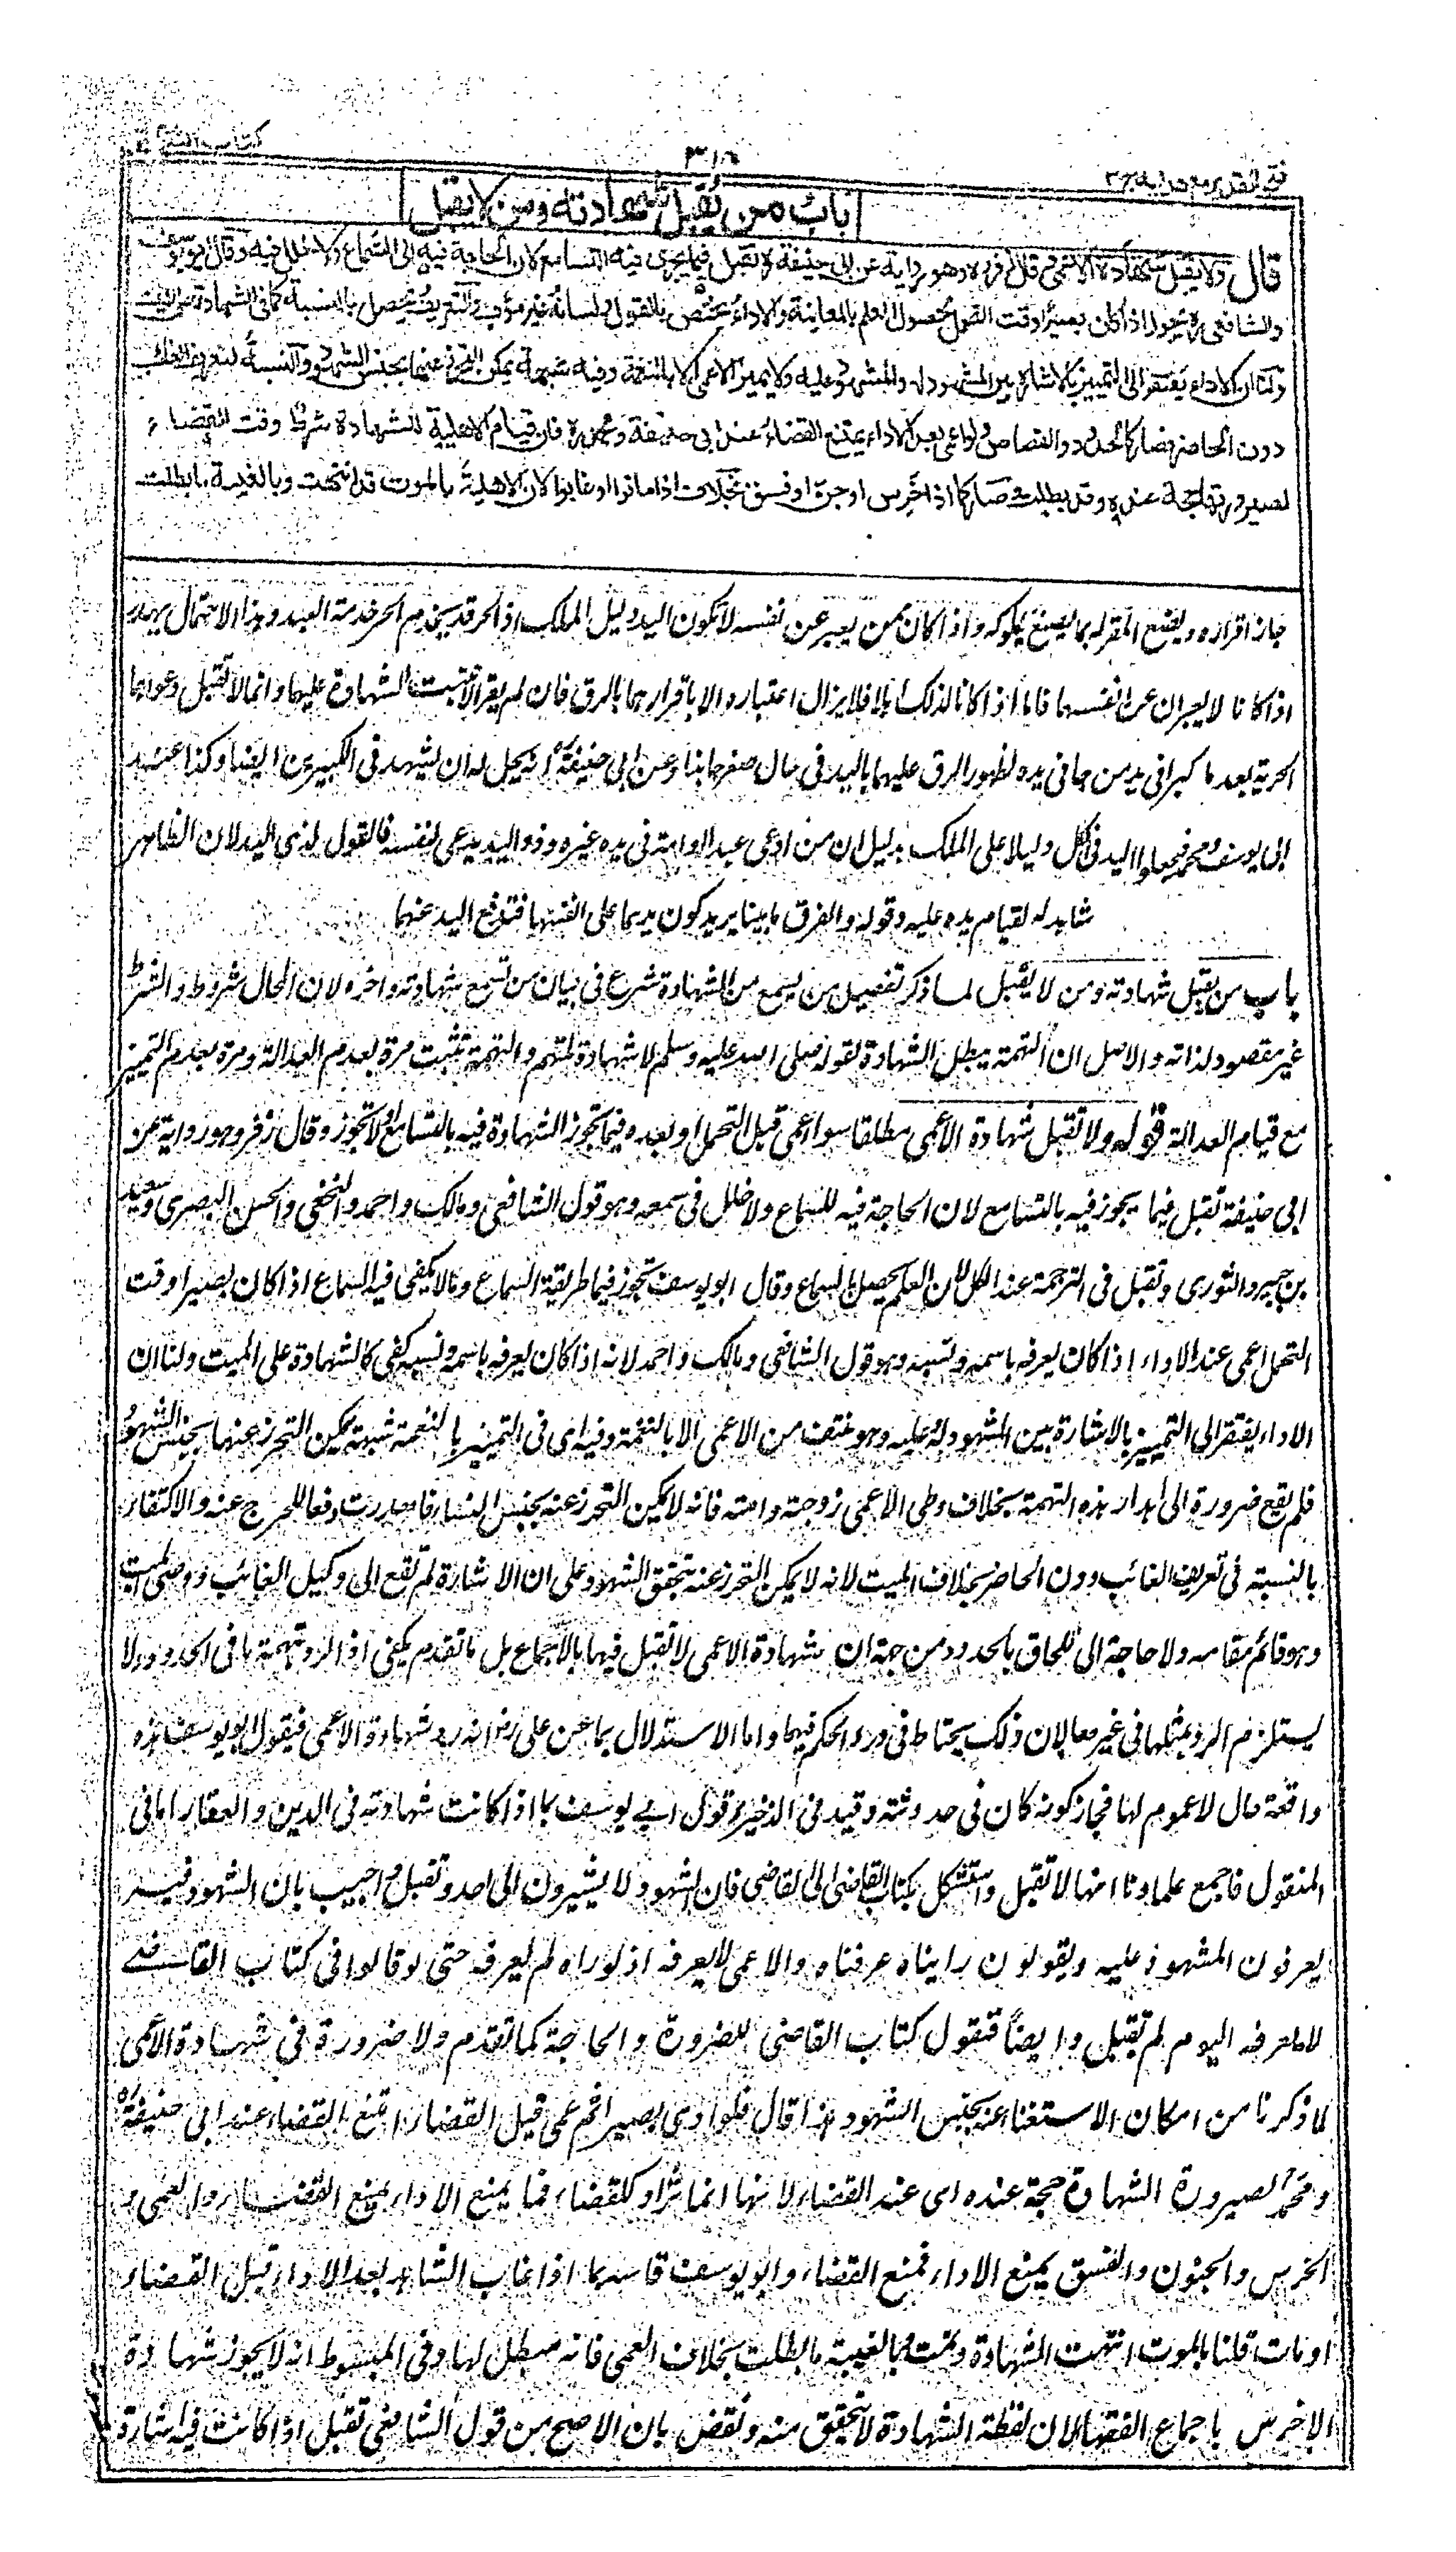 فتح القدير مع هدايه ج٣
٣١٦
كتاب الشهادة
باب من تقبل شهادته ومن لا تقبل
قال ولا يقبل شهادة الاعمى وقال زفر رہ وهو رواية عن ابى حنيفة رہ تقبل فيما يجرى فيه التسامع لان الحاجة فيه الى السماع ولا خلل فيه وقال ابو يوسف
والشافعى رہ يجوز اذا كان بصيرا وقت التحمل لحصول العلم بالمعاينة والاداء يختص بالقول ولسانه غير مؤف والتعريف يحصل بالنسبة كما فى الشهادة على الميت
ولنا ان الاداء يفتقر الى التمييز بالاشارة بين المشهود له والمشهود عليه ولا يميز الاعمى الا بالنغمة وفيه شبهة يمكن التحرز عنها بجنس الشهود والنسبة لتعريف الغائب
دون الحاضر فصار كالحدود والقصاص ولو عمى بعد الاداء يمتنع القضاء عند ابى حنيفة ومحمد رہ لان قيام الاهلية للشهادة شرط وقت القضاء
لصيرورتها حجة عنده وقد بطلت وصار كما اذا خرس او جن او فسق بخلاف اذا ماتوا او غابوا لان الاهلية بالموت قد انتهت وبالغيبة ما بطلت
جاز اقراره ويصنع المقر له به ما يصنع بمملوكه واذا كان ممن يعبر عن نفسه لا تكون اليد دليل الملك اذ الحر قد يخدم الحر خدمة العبد وهذا الاحتمال يهدر
اذا كانا لا يعبران عن انفسهما فاما اذا كانا لذلك اهلا فلا يزال اعتباره الا باقرارهما بالرق فان لم يقرا لا تثبت الشهادة عليهما وانما لا تقبل دعواهما
الحرية بعد ما كبرا فى يد من هما فى يده لظهور الرق عليهما باليد فى حال صغرهما هذا وعن ابى حنيفةؒ انه يحل له ان يشهد فى الكبيرين ايضا وكذا عند
ابى يوسف ومحمد فجعلوا اليد فى الكل دليلا على الملك بدليل ان من ادعى عبدا او امة فى يده غيره وذو اليد يدعى لنفسه فالقول لذى اليد لان الظاهر
شاهد له لقيام يده عليه وقوله والفرق ما بينا يريد كون يدهما على انفسهما فتدفع اليد عنهما
باب من يقبل شهادته ومن لا يقبل لما ذكر تفصيل من يسمع من الشهادة شرع فى بيان من تسمع شهادته واخره لان المحال شروط والشرط
غير مقصود لذاته والاصل ان التهمة يبطل الشهادة لقوله صلى الله عليه وسلم لا شهادة لمتهم والتهمة تثبت مرة بعدم العدالة ومرة بعدم التمييز
مع قيام العدالة قوله ولا تقبل شهادة الاعمى مطلقا سواء عمى قبل التحمل او بعده فيما تجوز الشهادة فيه بالتسامع او لا تجوز وقال زفر وهو رواية عن
ابى حنيفة تقبل فيما يجوز فيه بالتسامع لان الحاجة فيه للسماع ولا خلل فى سمعه وهو قول الشافعى ومالك واحمد والنخعى والحسن البصرى وسعيد
بن جبير والثورى وتقبل فى الترجمة عند الكل لان العلم يحصل بالسماع وقال ابو يوسف تجوز فيما طريقة السماع وما لا يكفى فيه السماع اذا كان بصيرا وقت
التحمل اعمى عند الاداء اذا كان يعرفه باسمه ونسبه وهو قول الشافعى ومالك واحمد لانه اذا كان يعرفه باسمه ونسبه كفى كالشهادة على الميت ولنا ان
الاداء يفتقر الى التمييز بالاشارة بين المشهود له وعليه وهو منتف من الاعمى الا بالنغمة وفيه اى فى التمييز بالنغمة شبهة يمكن التحرز عنها بجنس الشهود
فلم يقع ضرورة الى اهدار هذه التهمة بخلاف وطى الاعمى زوجته وامته فانه لا يمكن التحرز عنه بجنس النساء فاهدرت دفعا للحرج عنه والاكتفاء
بالنسبة فى تعريف الغائب دون الحاضر بخلاف الميت لانه لا يمكن التحرز عنه بتحقق الشهود على ان الاشارة لم تقع الى وكيل الغائب ووصى الميت
وهو قائم مقامه ولا حاجة الى اللحاق بالحدود من جهة ان شهادة الاعمى لا تقبل فيها بالاجماع بل ما تقدم يكفى اذ الرد بتهمة ما فى الحدود لا
يستلزم الرد بمثلها فى غيرها لان ذلك يحتاط فى درء الحكم فيها واما الاستدلال بما عن على رض انه رد شهادة الاعمى فيقول ابو يوسف هذه
واقعة حال لا عموم لها فجاز كونه كان فى حد وثته وقيد فى الذخيرة قول ابى يوسف بما اذا كانت شهادته فى الدين والعقار اما فى
المنقول فاجمع علماؤنا انها لا تقبل واستشكل بكتاب القاضى الى القاضى فان الشهود لا يشيرون الى احد وتقبل واجيب بان الشهود فيه
يعرفون المشهود عليه ويقولون لو رايناه عرفناه والاعمى لا يعرفه اذ لو راه لم يعرفه حتى لو قالوا فى كتاب القاضى
لا نعرفه اليوم لم تقبل وايضا فنقول كتاب القاضى للضرورة والحاجة كما تقدم ولا ضرورة فى شهادة الاعمى
لما ذكرنا من امكان الاستغناء عنه بجنس الشهود ثم اذا قال فلو ادى بصيرا ثم عمى قبل القضاء امتنع القضاء عند ابى حنيفةؒ
ومحمدؒ لصيرورة الشهادة حجة عنده اى عند القضاء لانها انما تراد للقضاء فما يمنع الاداء يمنع القضاء والعمى و
الخرس والجنون والفسق يمنع الاداء فمنع القضاء وابو يوسف قاسه بما اذا غاب الشاهد بعد الاداء قبل القضاء
او مات قلنا بالموت انتهت الشهادة وتمت وبالغيبة ما بطلت بخلاف العمى فانه مبطل لها وفى المبسوط انه لا يجوز شهادة
الاخرس باجماع الفقهاء لان لفظة الشهادة لا تتحقق منه ونقض بان الاصح من قول الشافعى تقبل اذا كانت فيه اشارة